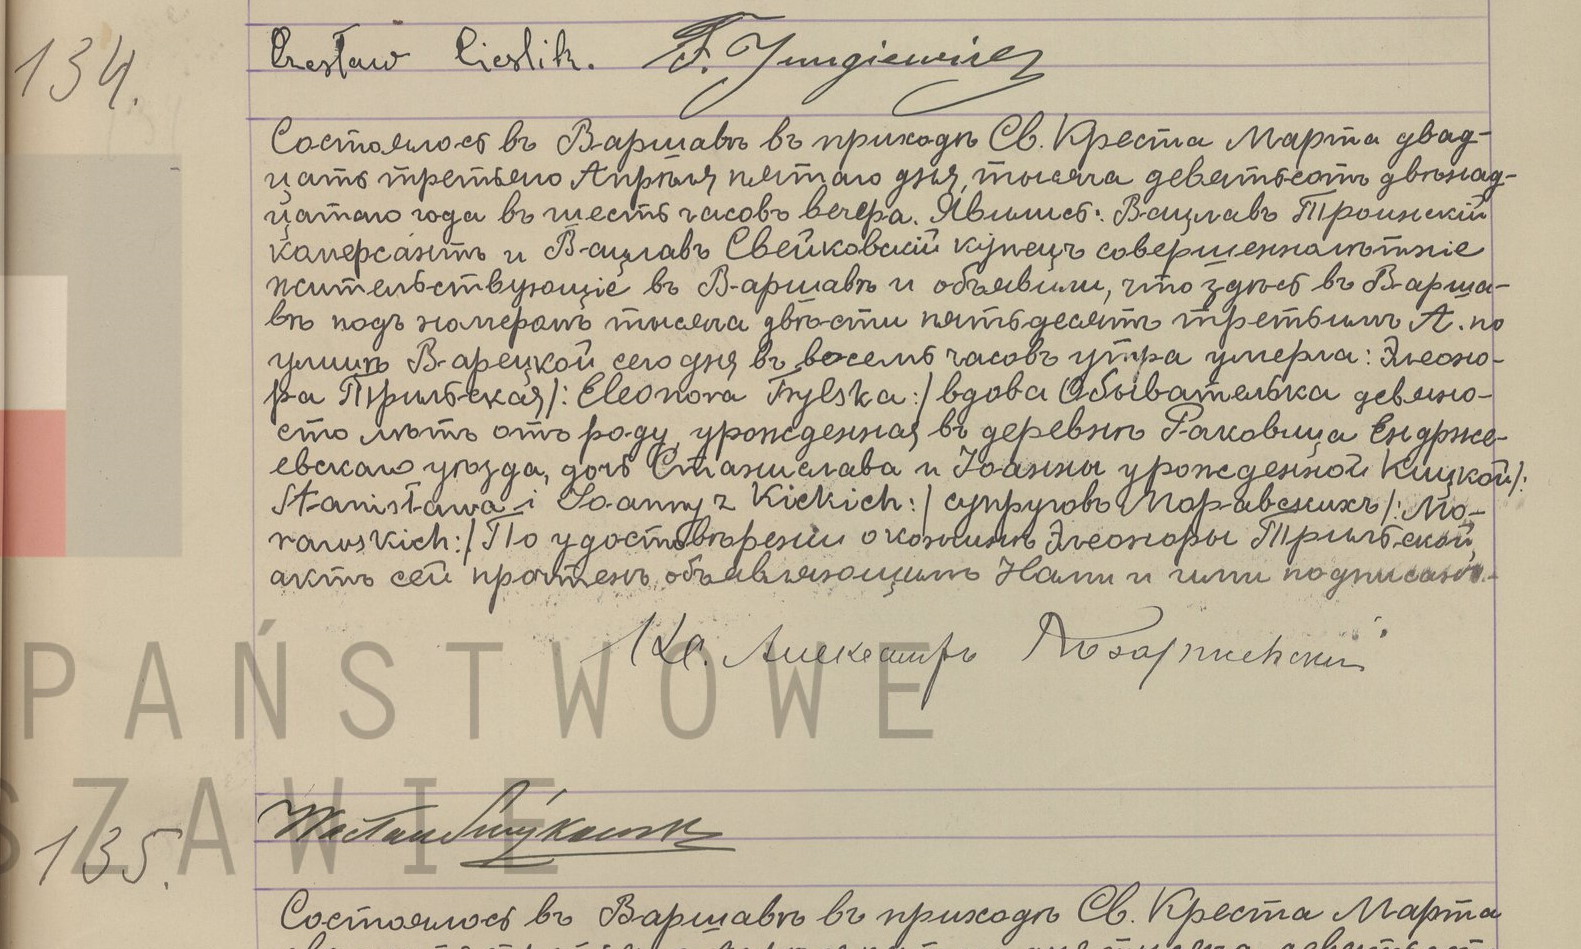 134.
Czesław Cieslik. F. Jungiewicz
Состоялось въ Варшавѣ въ приходѣ Св. Креста Марта двад-
цать третьяго Апрѣля пятаго дня, тысяча девятьсотъ двѣнад-
цатаго года въ шесть часовъ вечера. Явились: Вацлавъ Троинскій
и Вацлавъ Свейковскій купецъ совершеннолѣтніе
жительствующіе въ Варшавѣ и объявили, что здѣсь въ Варша-
вѣ подъ номеромъ тысяча двѣсти пятьдесятъ третьимъ А. по
улицѣ Варецкой сегодня въ восемь часовъ утра умерла: Элеоно-
ра Трильская /: Eleonora Trylska :/ вдова Обывателька девяно-
сто лѣтъ отъ роду, урожденная въ деревнѣ Раковица Ендрже-
евскаго уѣзда, дочь Станислава и Іоанны урожденной Кицкой /:
Stanisława i Joanny z Kickich :/ супруговъ Моравскихъ /: Mo-
rawskich :/ По удостовѣреніи о кончинѣ Элеоноры Трильской,
актъ сей прочтенъ объявляющимъ Нами и ими подписанъ.
Кс. Александръ
PAŃSTWOWE
135.
SZAWIE
Состоялось въ Варшавѣ въ приходѣ Св. Креста Марта